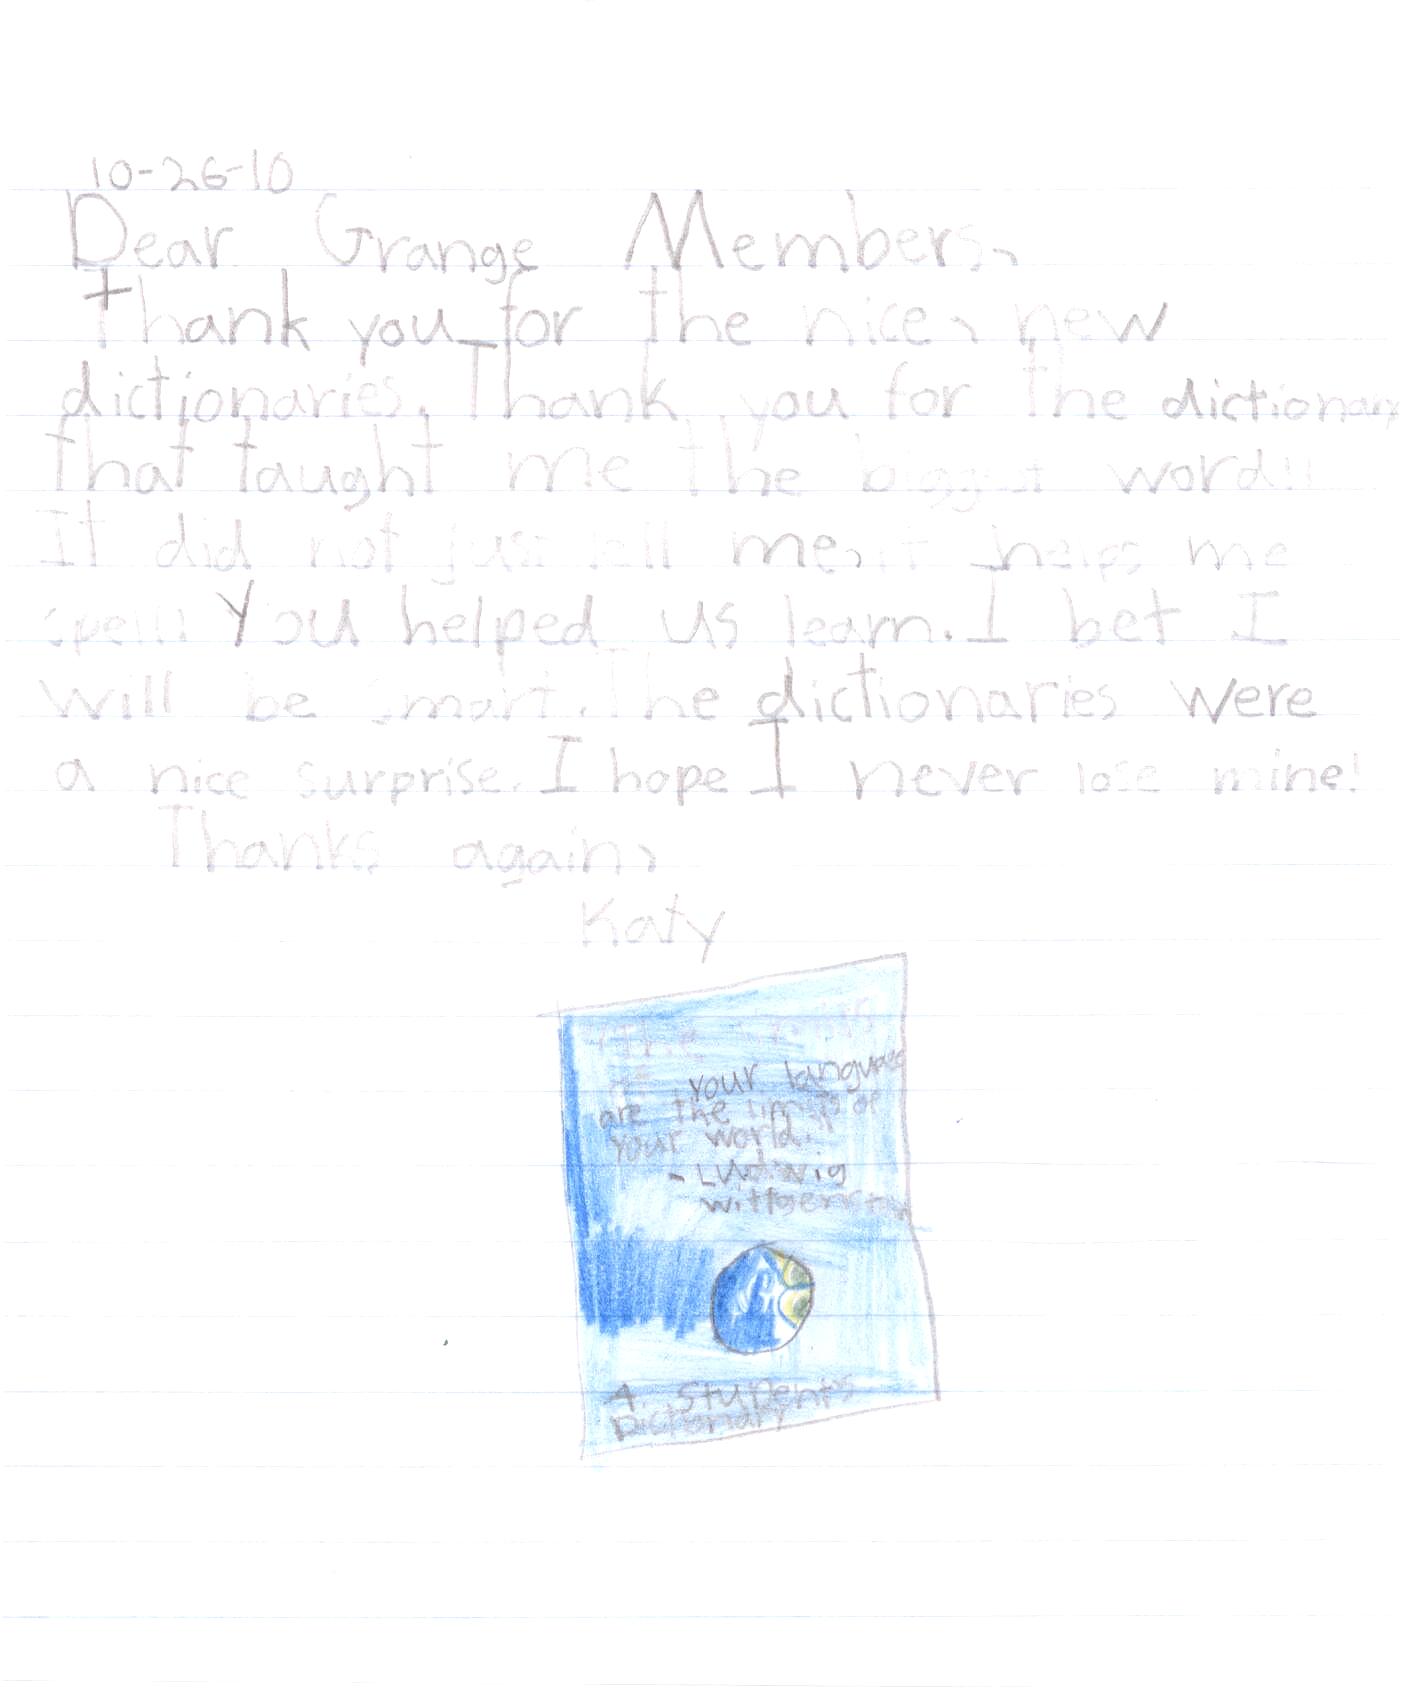 10-26-10
Dear Grange Members,
Thank you for the nice, new
dictionaries. Thank you for the dictionary
that taught me the biggest word!!
It did not just tell me, it helps me
spell! You helped us learn. I bet I
will be smart. The dictionaries were
a nice surprise. I hope I never lose mine!
Thanks again,
Katy
"The
of your language
are the limits of
your world."
- Ludwig
Wittgenstein
A Student's
Dictionary